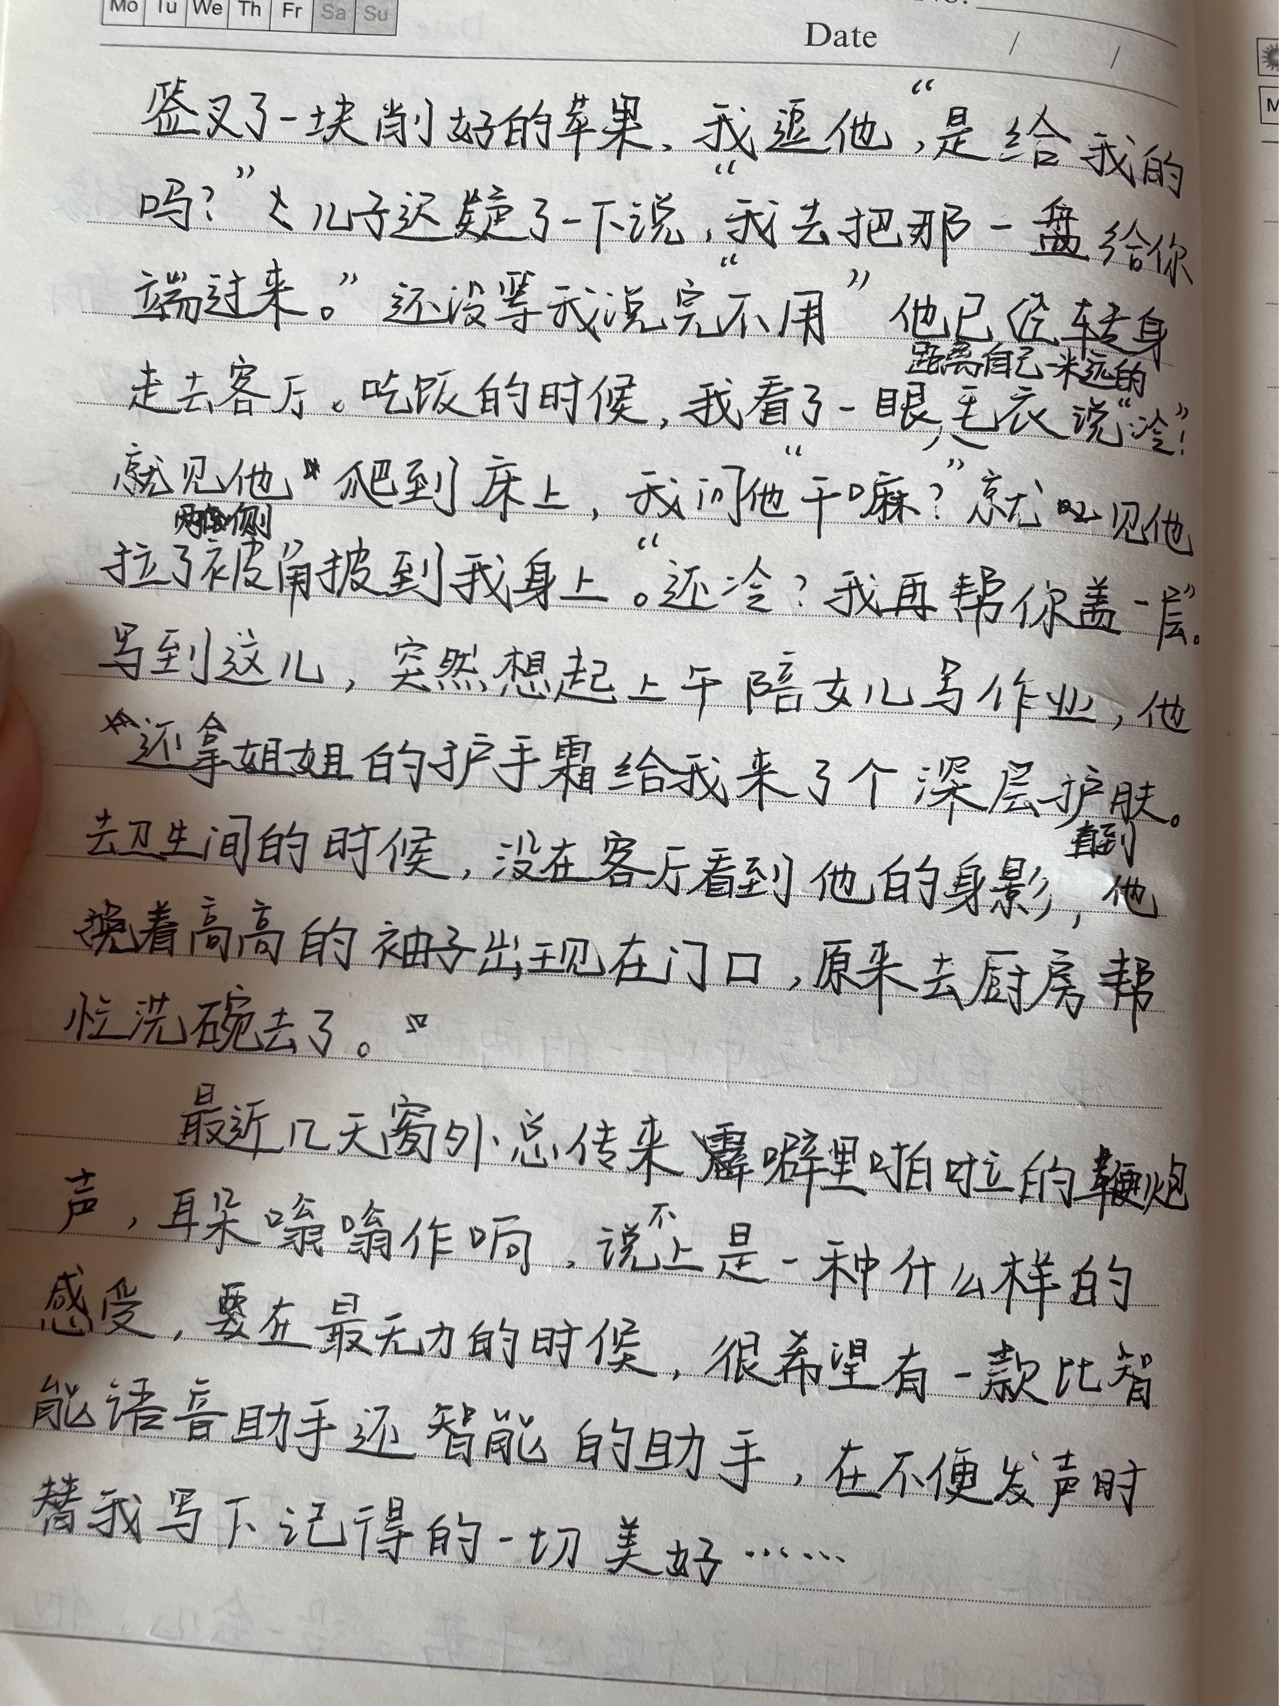 Mo Tu We Th Fr Sa Su
Date / /
签叉了一块削好的苹果，我逗他，“是给我的
吗？”儿子迟疑了一下说，“我去把那一盘给你
端过来。”还没等我说完“不用”他已经转身
距离自己一米远的
走去客厅。吃饭的时候，我看了一眼毛衣说“冷”！
就见他爬到床上，我问他“干嘛？”就见他
两侧
拉了被角披到我身上。“还冷？我再帮你盖一层”。
写到这儿，突然想起上午陪女儿写作业，他
还拿姐姐的护手霜给我来了个深层护肤。
直到
去卫生间的时候，没在客厅看到他的身影，他
挽着高高的袖子出现在门口，原来去厨房帮
忙洗碗去了。
最近几天窗外总传来噼里啪啦的鞭炮
不
声，耳朵嗡嗡作响，说上是一种什么样的
感受，要在最无力的时候，很希望有一款比智
能语音助手还智能的助手，在不便发声时
替我写下记得的一切美好……